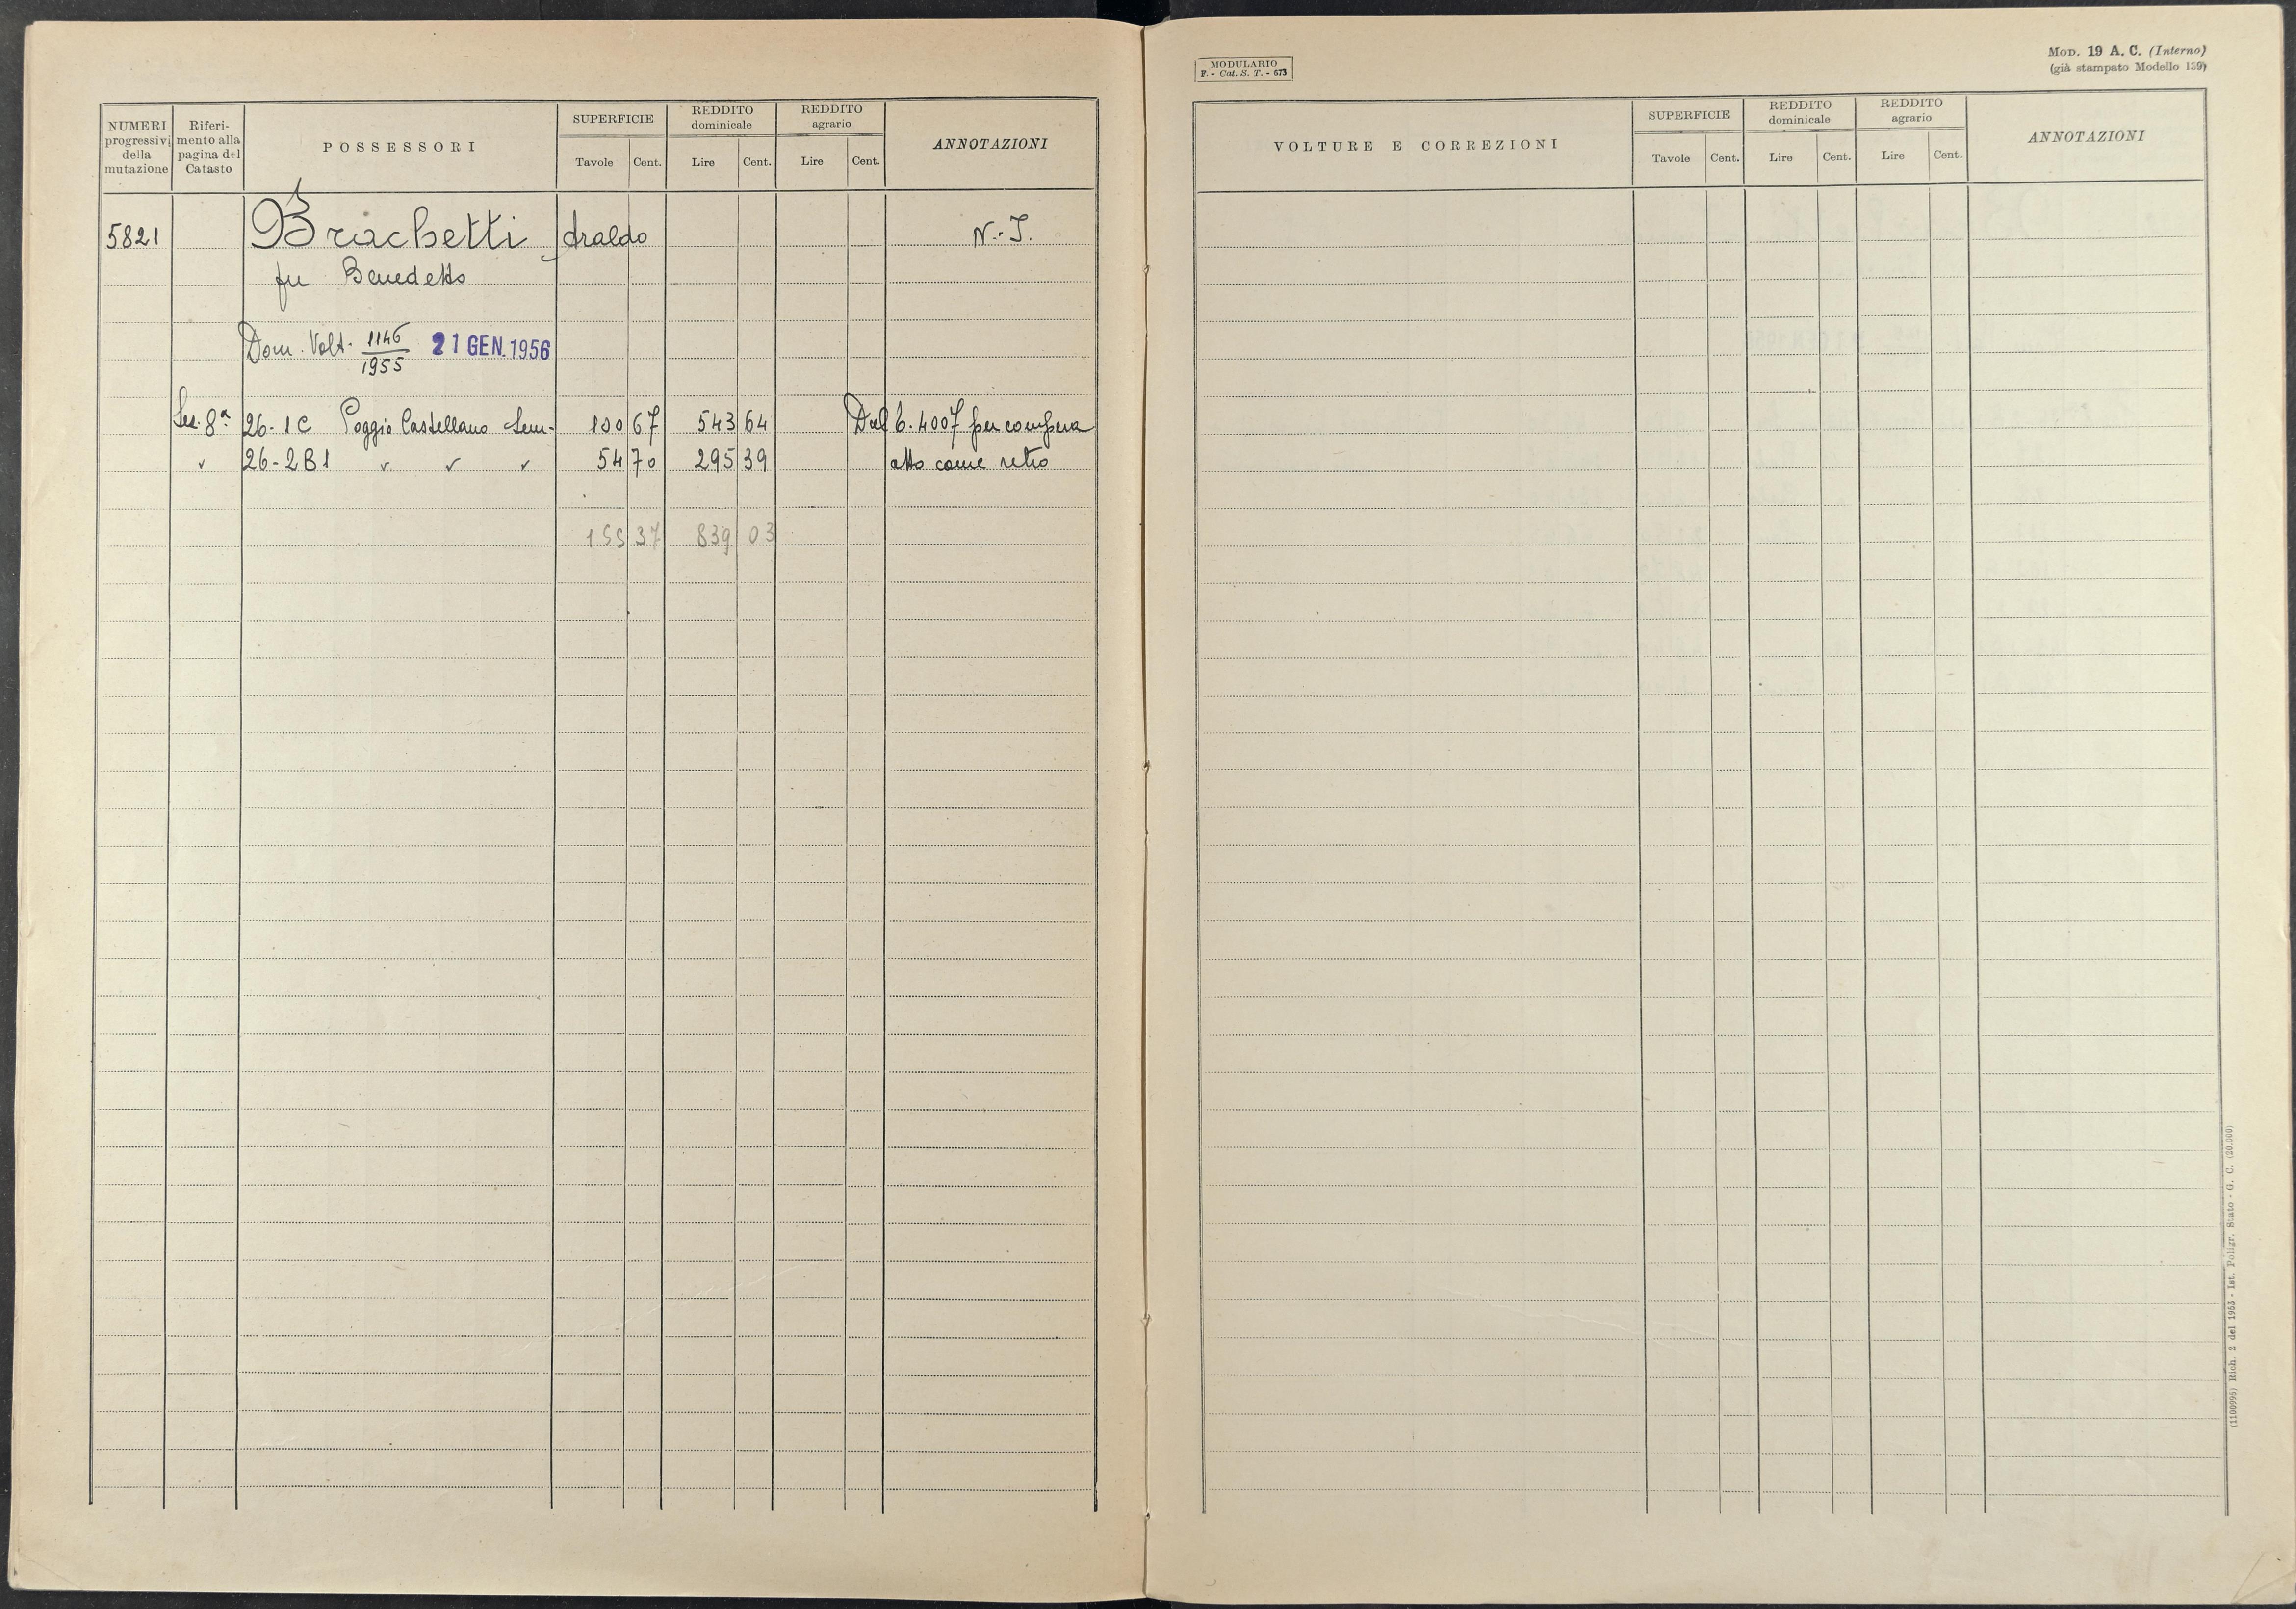 NUMERI progressivi della mutazione
Riferimento alla pagina del Catasto
POSSESSORI
SUPERFICIE
Tavole Cent.
REDDITO dominicale
Lire Cent.
REDDITO agrario
Lire Cent.
ANNOTAZIONI
5821 Brachetti N.-I.
fu Benedetto
Dom. Volt. 1146/1955 21 GEN. 1956
Sez. 8ª 26-1C Poggio Castellano Sem- 100 67 543 64 Dal 6.4007 per compera
" 26-2B1 " " " 54 70 295 39 atto come retro
155 37 839 03
MODULARIO
F. - Cat. S. T. - 673
MOD. 19 A. C. (Interno)
(già stampato Modello 139)
VOLTURE E CORREZIONI
SUPERFICIE
Tavole Cent.
REDDITO dominicale
Lire Cent.
REDDITO agrario
Lire Cent.
ANNOTAZIONI
(110096) Rich. 2 del 1953 - Ist. Poligr. Stato - G. C. (20.000)